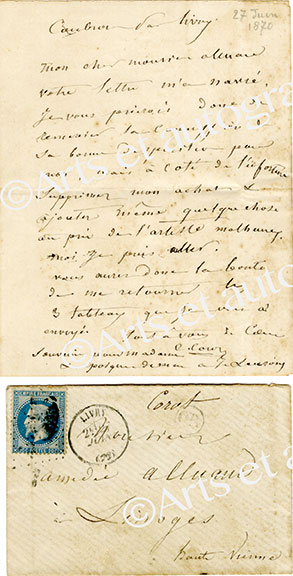 27 Juin
1870
Coubron par Livry
mon cher monsieur alluaud
votre lettre m'a navré.
Je vous prierais donc de
remercier la Commission de
sa bonne disposition pour
moi mais à côté de l'infortune
supprimer mon achat &
ajouter même quelque chose
au prix de l'artiste malheureux
moi Je puis aller.
vous aurez donc la bonté
de me retourner les
3 tableaux que je vous ai
envoyés
Tout à vous de Cœur
souvenir à madame C. Corot
& poignée de main à
Corot
LIVRY
JUIN
Monsieur
amédée alluaud
à Limoges
haute Vienne
© Arts et autographes